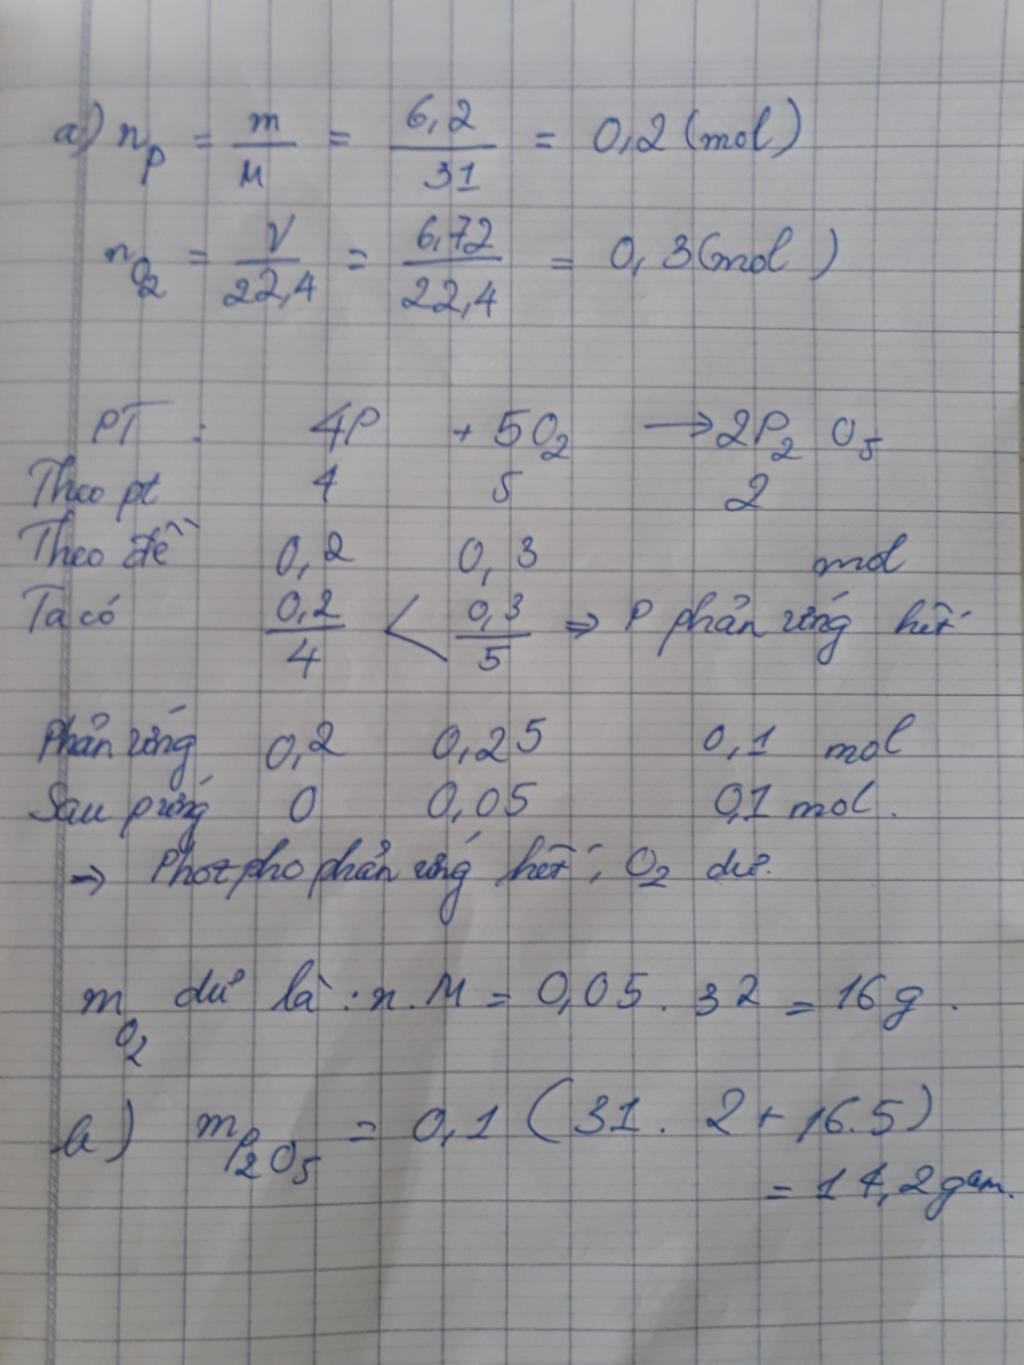 a) nP = m/M = 6,2/31 = 0,2 (mol)
nO2 = V/22,4 = 6,72/22,4 = 0,3 (mol)
PT : 4P + 5O2 → 2P2O5
Theo pt 4 5 2
Theo đề 0,2 0,3 mol
Ta có 0,2/4 < 0,3/5 ⇒ P phản ứng hết
Phản ứng 0,2 0,25 0,1 mol
Sau p ứng 0 0,05 0,1 mol.
⇒ Photpho phản ứng hết ; O2 dư.
mO2 dư là : n.M = 0,05 . 32 = 16 g .
b) mP2O5 = 0,1 (31. 2 + 16.5)
= 14,2 gam.